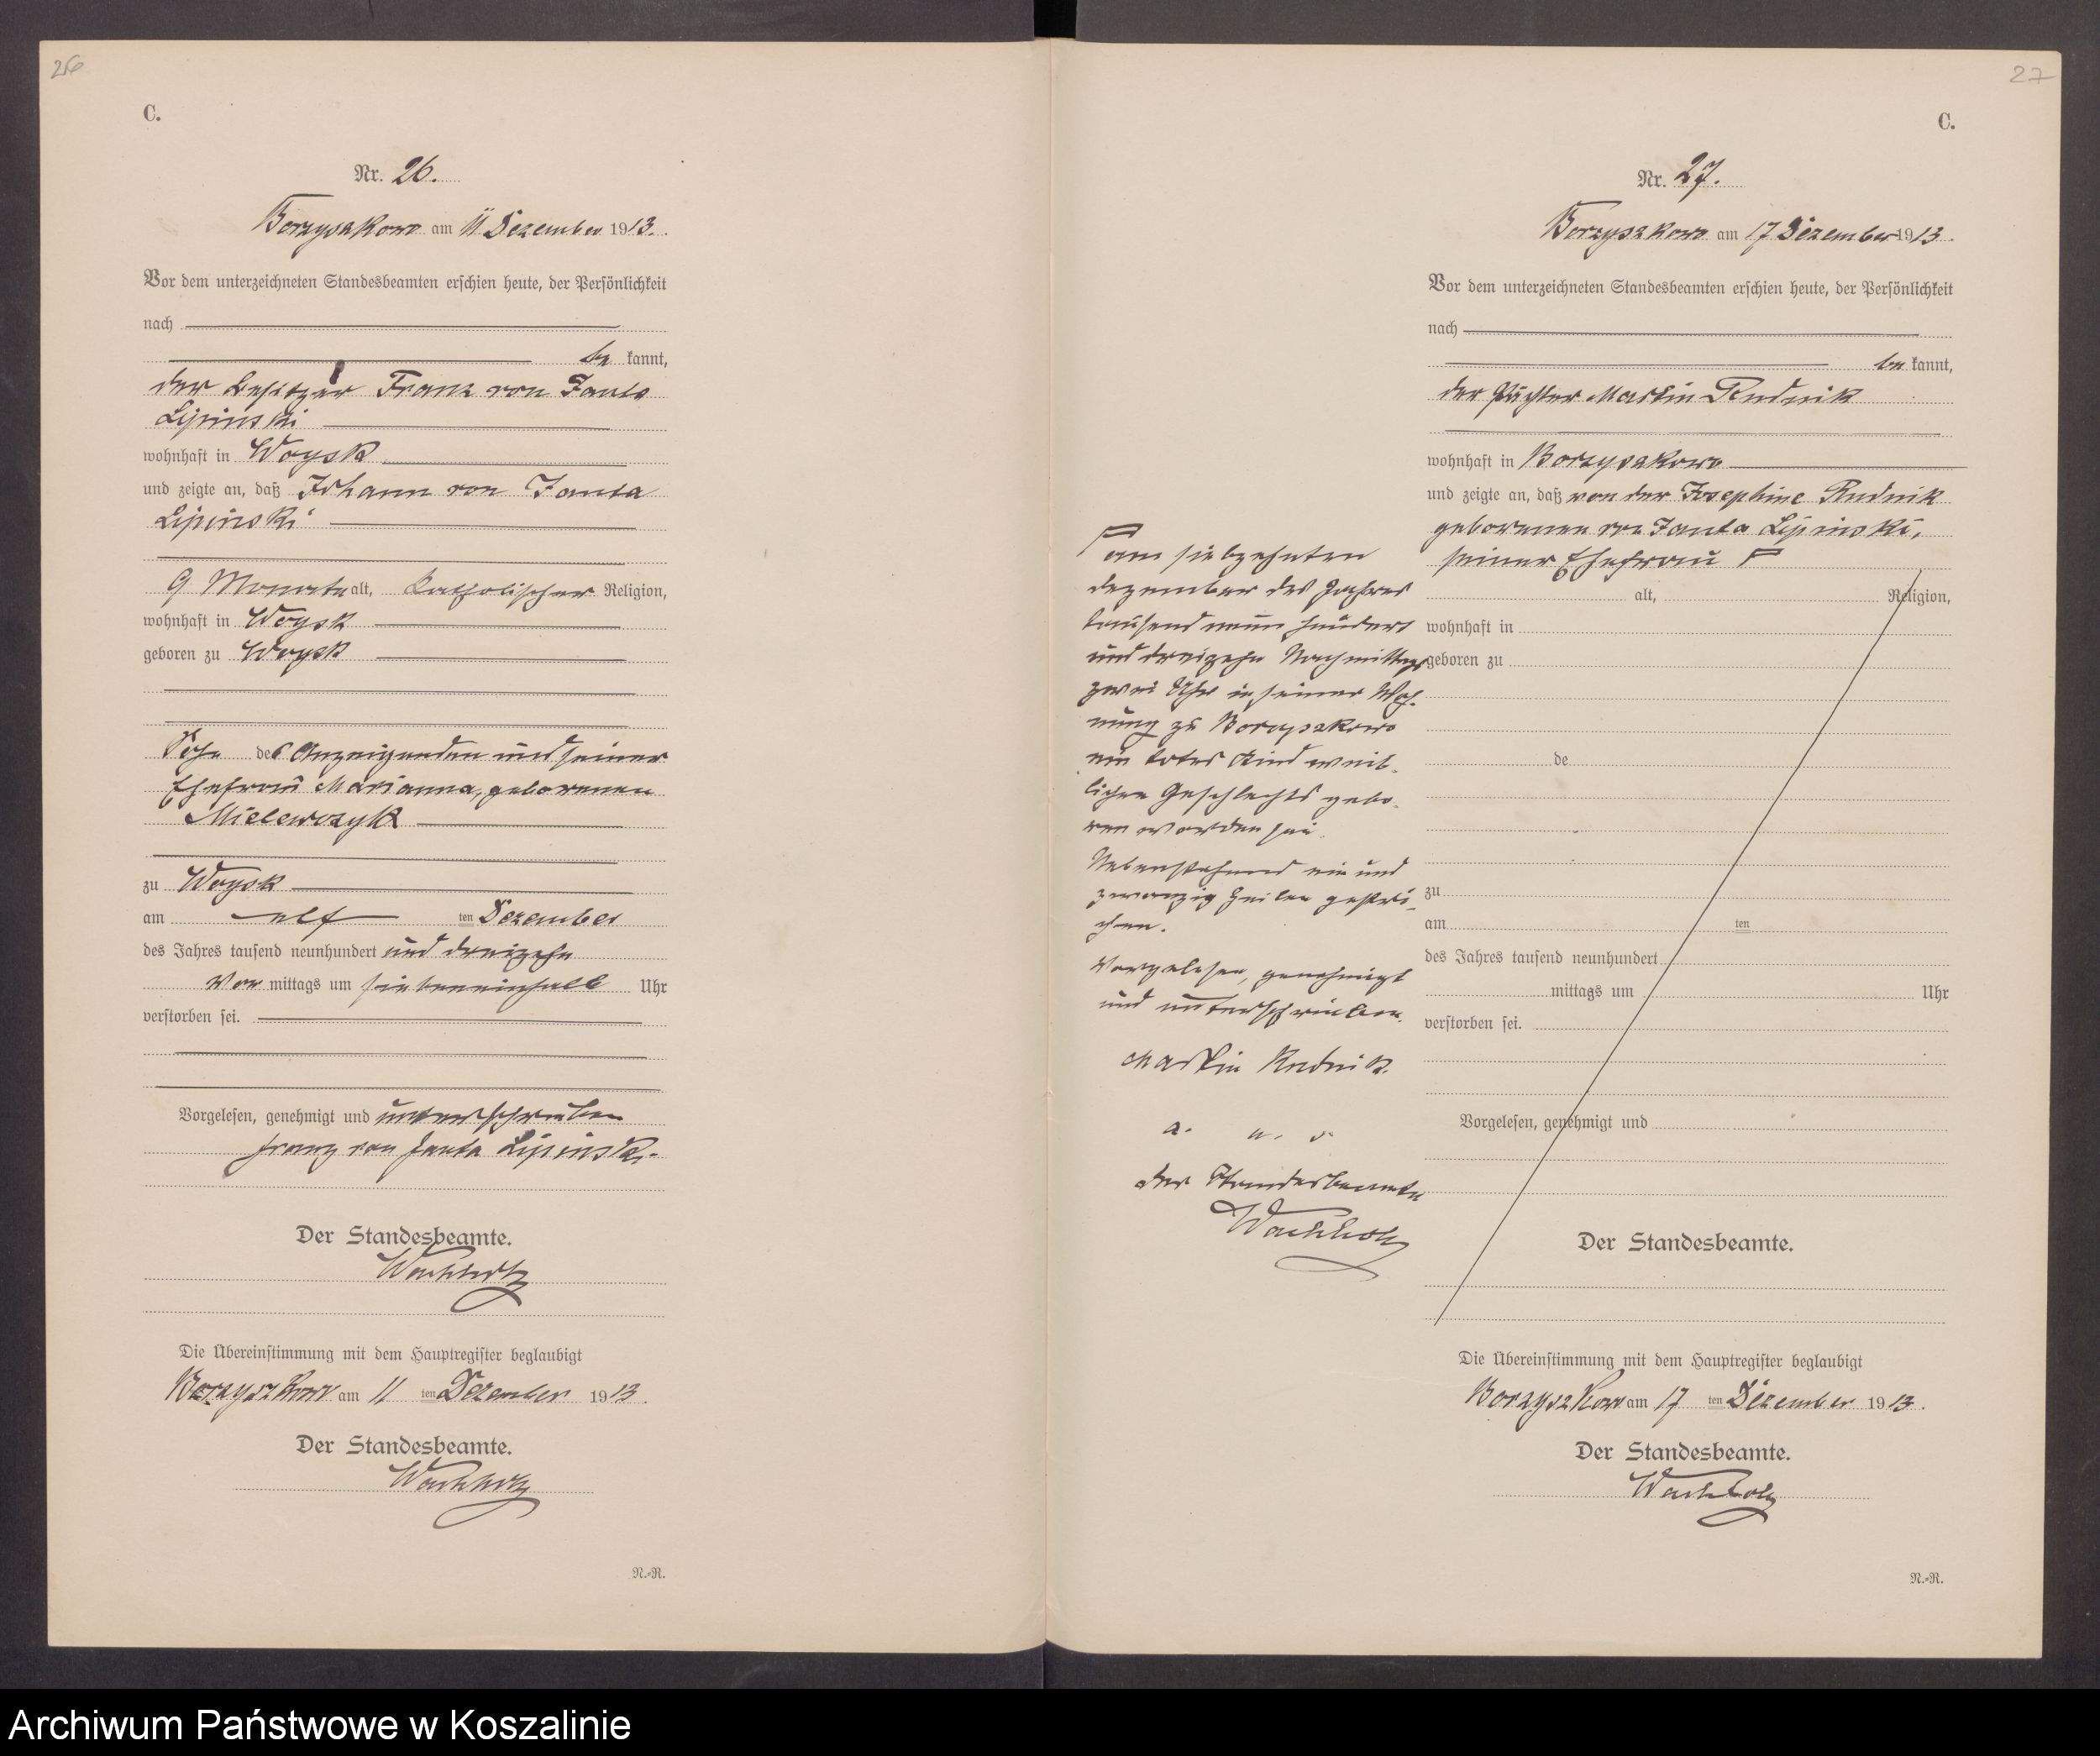 26
C.
Nr. 26.
Borzyszkowo am 11. Dezember 1913.
Vor dem unterzeichneten Standesbeamten erschien heute, der Persönlichkeit
nach
be kannt,
der Besitzer Franz von Janta
Lipinski
wohnhaft in Woysk
und zeigte an, daß Johann von Janta
Lipinski
9 Monate alt, katholischer Religion,
wohnhaft in Woysk
geboren zu Woysk
Sohn des Anzeigenden und seiner
Ehefrau Marianna, geborenen
Mielewczyk
zu Woysk
am elf ten Dezember
des Jahres tausend neunhundert und dreizehn
Vor mittags um siebeneinhalb Uhr
verstorben sei.
Vorgelesen, genehmigt und unterschrieben
Franz von Janta Lipinski.
Der Standesbeamte.
Wachholz
Die Übereinstimmung mit dem Hauptregister beglaubigt
Borzyszkowo am 11 ten Dezember 1913.
Der Standesbeamte.
Wachholz
N.-R.
27
C.
Nr. 27.
Borzyszkowo am 17 Dezember 1913.
Vor dem unterzeichneten Standesbeamten erschien heute, der Persönlichkeit
nach
be kannt,
der Pächter Martin Rudnik
wohnhaft in Borzyszkowo
und zeigte an, daß von der Josephine Rudnik
geborenen von Janta Lipinski,
seiner Ehefrau
am siebzehnten
Dezember des Jahres
tausend neun hundert
und dreizehn Nachmittags
zwei Uhr in seiner Woh-
nung zu Borzyszkowo
ein totes Kind weib-
lichen Geschlechts gebo-
ren worden sei.
Nebenstehend ein und
zwanzig Zeilen gestri-
chen.
Vorgelesen, genehmigt
und unterschrieben.
Martin Rudnik.
a. u. s.
Der Standesbeamte
Wachholz
alt, Religion,
wohnhaft in
geboren zu
de
zu
am ten
des Jahres tausend neunhundert
mittags um Uhr
verstorben sei.
Vorgelesen, genehmigt und
Der Standesbeamte.
Die Übereinstimmung mit dem Hauptregister beglaubigt
Borzyszkowo am 17 ten Dezember 1913.
Der Standesbeamte.
Wachholz
N.-R.
Archiwum Państwowe w Koszalinie